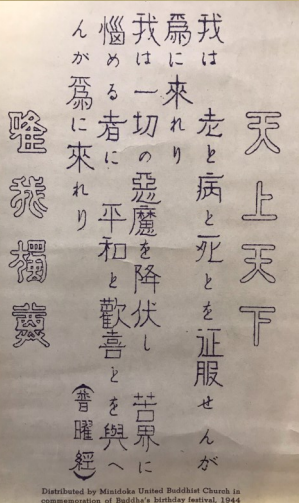 天上天下
我は　老と病と死とを征服せんが
爲に來れり
我は一切の惡魔を降伏し　苦界に
惱める者に　平和と歡喜とを與へ
んが爲に來れり　（普曜經）
唯我獨尊
Distributed by Minidoka United Buddhist Church in
commemoration of Buddha's birthday festival, 1944